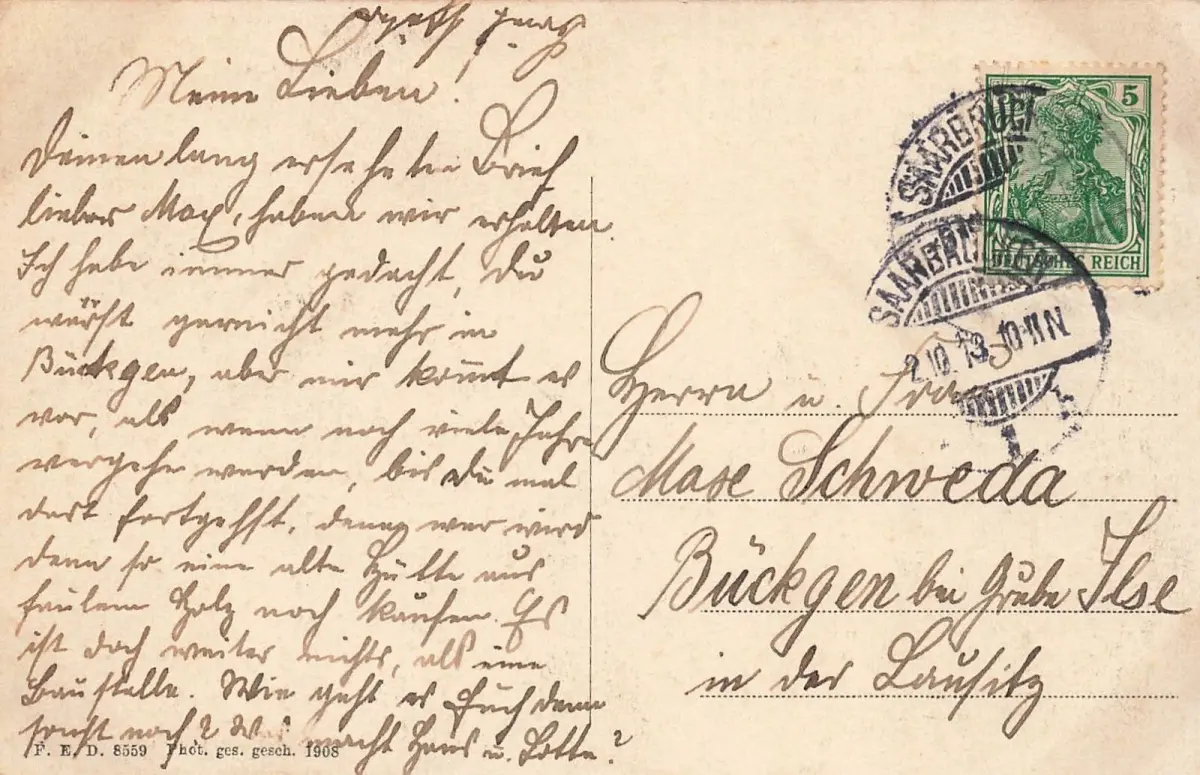 Meine Lieben!
Deinen lang ersehnten Brief
lieber Max, haben wir erhalten.
Ich habe immer gedacht, Du
wärst garnicht mehr in
Bückgen, aber mir kommt es
vor, als wenn noch viele Jahre
vergehn werden, bis Du mal
dort fortgehst, denn wer wird
denn so eine alte Hütte aus
faulem Holz noch kaufen. Es
ist doch weiter nichts, als eine
Baustelle. Wie geht es Euch denn
sonst noch? Was macht Hans u. Lotte?
F. E. D. 8559 Phot. ges. gesch. 1908
5
DEUTSCHES REICH
SAARBRÜCK
SAARBRÜCKEN
2.10.13. 10-11 N
Herrn u. Frau
Max Schweda
Bückgen bei Grube Ilse
in der Lausitz